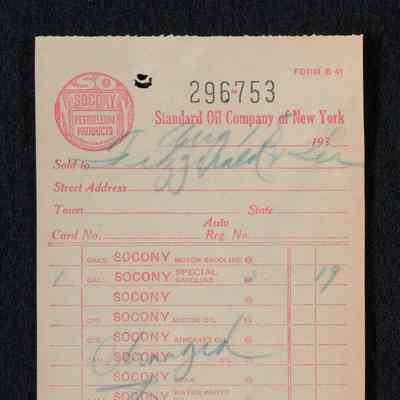 FORM B 41
SOCONY
PETROLEUM
PRODUCTS
296-753
Standard Oil Company of New York
Aug 193
Sold to Fitzgerald
Street Address
Town State
Card No. Auto Reg. No.
GALS. SOCONY MOTOR GASOLINE @
1 GAL. SOCONY SPECIAL GASOLINE @ 19
SOCONY @
QTS. SOCONY MOTOR OIL @
QTS. SOCONY AIRCRAFT OIL @
Charged
SOCONY
SOCONY